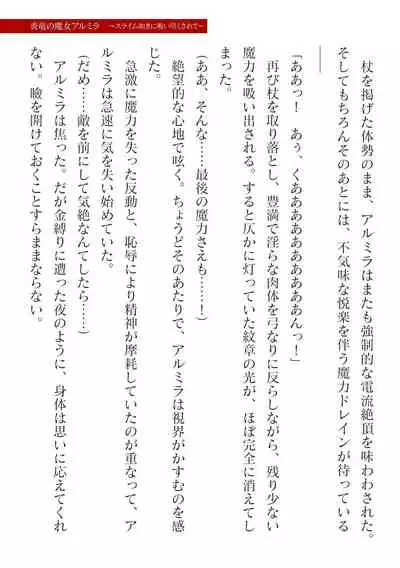 炎竜の魔女アルミラ ～スライム奴隷に吸い尽くされて～
杖を掲げた体勢のまま、アルミラはまたも強制的な電流絶頂を味わわされた。
そしてもちろんそのあとには、不気味な悦楽を伴う魔力ドレインが待っている
――
「ああっ！　あぅ、くあああああああああんっ！」
再び杖を取り落とし、豊満で淫らな肉体を弓なりに反らしながら、残り少ない
魔力を吸い出される。すると仄かに灯っていた紋章の光が、ほぼ完全に消えてし
まった。
（ああ、そんな……最後の魔力さえも……！）
絶望的な心地で呟く。ちょうどそのあたりで、アルミラは視界がかすむのを感
急激に魔力を失った反動と、恥辱により精神が摩耗していたのが重なって、ア
ルミラは急速に気を失い始めていた。
（だめ……敵を前にして気絶なんてしたら……）
アルミラは焦った。だが金縛りに遭った夜のように、身体は思いに応えてくれ
ない。瞼を開けておくことすらままならない。